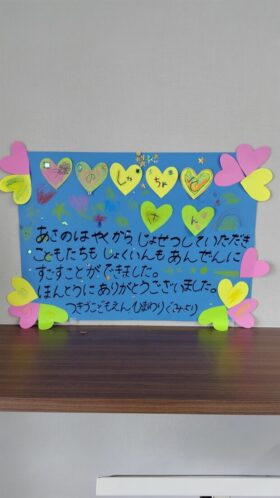 のしゃちょ
さん
あさのはやくから じょせつしていただき
こどもたちも しょくいんもあんぜんに
すごすことができました。
ほんとうにありがとうございました。
つきづこどもえん ひまわりぐみより